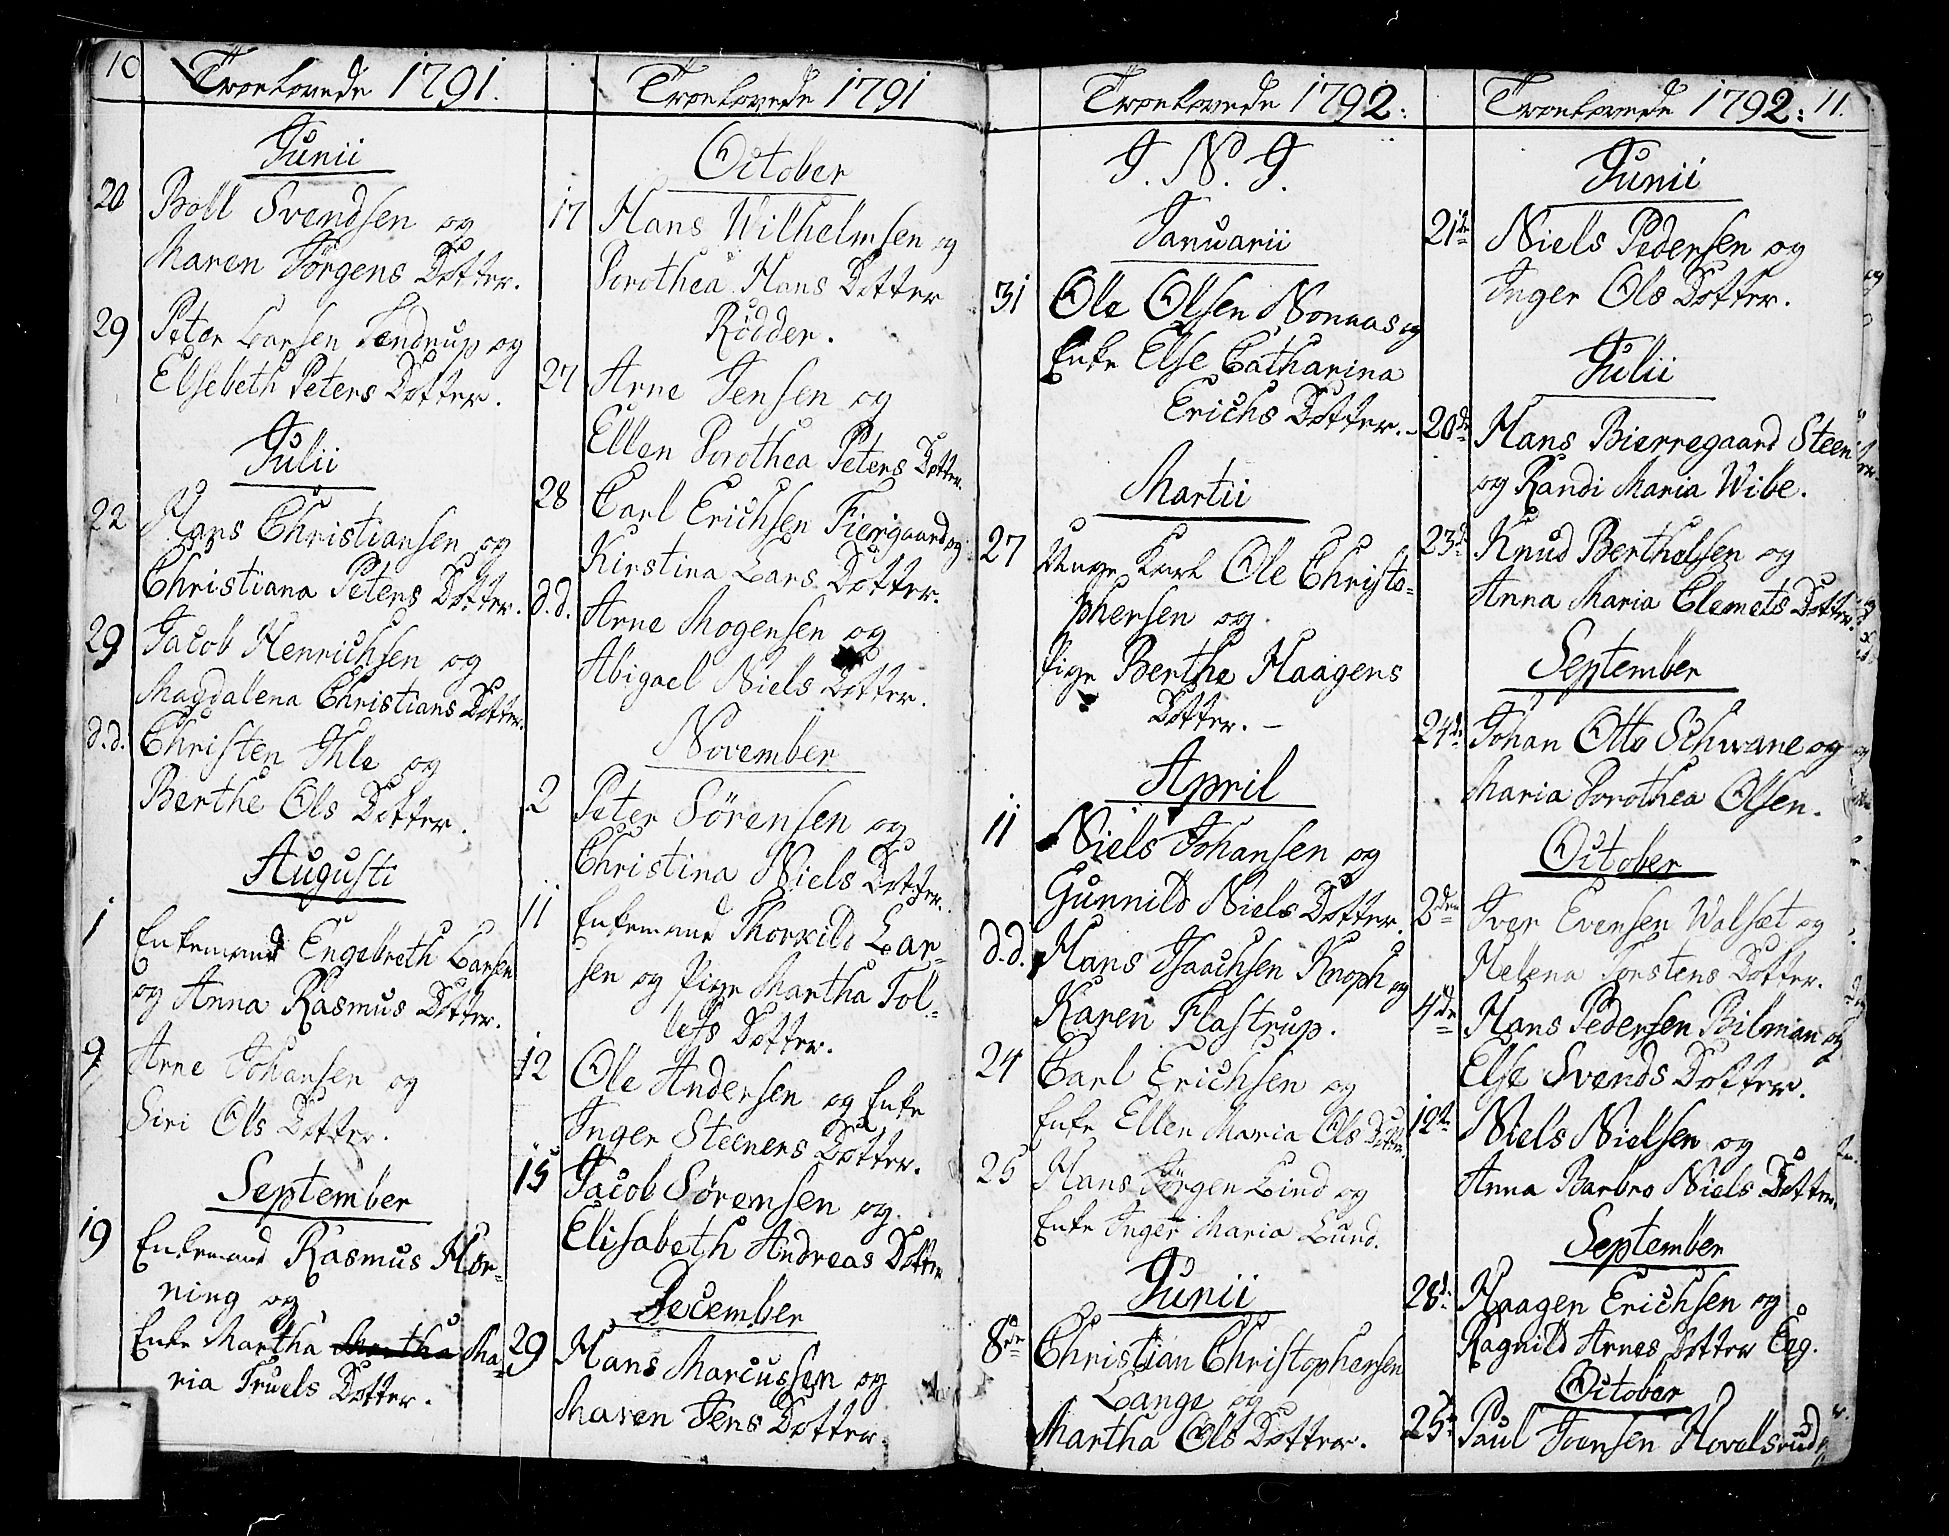 10
Troelovede 1791.
Junii
20 Boll Svendsen og
Maren Jörgens Dotter.
29 Peter Larsen Tendrup og
Elsebeth Peters Dotter.
Julii
22 Hans Christiansen og
Christiana Peters Dotter.
29 Jacob Henrichsen og
Magdalena Christians Dotter.
d.d. Christen Ihle og
Berthe Ols Dotter.
Augusti
1 Enkemand Engebreth Larsen
og Anna Rasmus Dotter.
9 Arne Johansen og
Siri Ols Dotter.
September
19 Enkemand Rasmus Hor-
ning og
Enke Martha Martha Ma-
ria Truels Dotter.
Troelovede 1791
October
17 Hans Wilhelmsen og
Dorothea Hans Dotter
Rödder.
27 Arne Jensen og
Ellen Dorothea Peters Dotter.
28 Carl Erichsen Fiergaard og
Kirstina Lars Dotter.
d.d. Arne Mogensen og
Abigael Niels Dotter.
November
2 Peter Sörensen og
Christina Niels Dotter.
11 Enkemand Thorkild Lar-
sen og Pige Martha Tol-
lefs Dotter.
12 Ole Andersen og Enke
Inger Steeners Dotter.
15 Jacob Sörensen og
Elisabeth Andreas Dotter
December
29 Hans Marcussen og
Maren Jens Dotter
Troelovede 1792:
J. N. J.
Januarii
31 Ole Olsen Nonaas og
Enke Else Catharina
Erichs Dotter. -
Martii
27 Unge Karl Ole Christo-
phersen og
Pige Berthe Haagens
Dotter. -
April
11 Niels Johansen og
Gunnild Niels Dotter.
d.d. Hans Isaachsen Knoph og
Karen Flastrup.
24 Carl Erichsen og
Enke Ellen Maria Ols Dotter.
25 Hans Jörgen Lind og
Enke Inger Maria Lund.
Junii
8de Christian Christophersen
Lange og
Martha Ols Dotter.
Troelovede 1792: 11.
Junii
21de Niels Pedersen og
Inger Ols Dotter.
Julii
20de Hans Bierregaard Steen
og Randi Maria Wibe.
23d Knud Berthelsen og
Anna Maria Clemets Dotter.
September
24de Johan Otto Schwane og
Maria Dorothea Olsen.
October
2den Iver Evensen Walsæt og
Helena Torstens Dotter.
4de Hans Pedersen Bilman og
Else Svends Dotter.
12te Niels Nielsen og
Anna Barbro Niels Dotter.
September
28d. Haagen Erichsen og
Ragnild Arnes Dotter Eeg.
October
25d Paul Iversen Hovelsrud